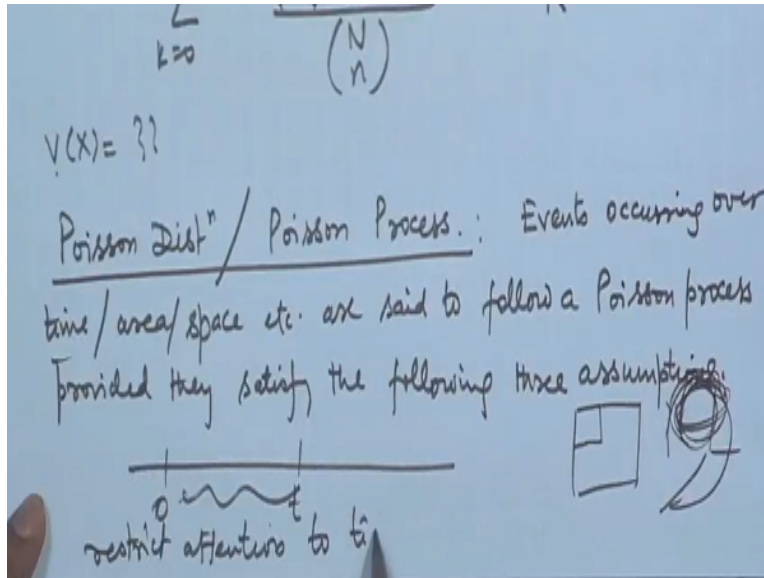 k=0
(N
n)
V(X)= ??
Poisson Distⁿ / Poisson Process. : Events occurring over
time/area/space etc. are said to follow a Poisson process
provided they satisfy the following three assumptions.
0 t
restrict attention to ti